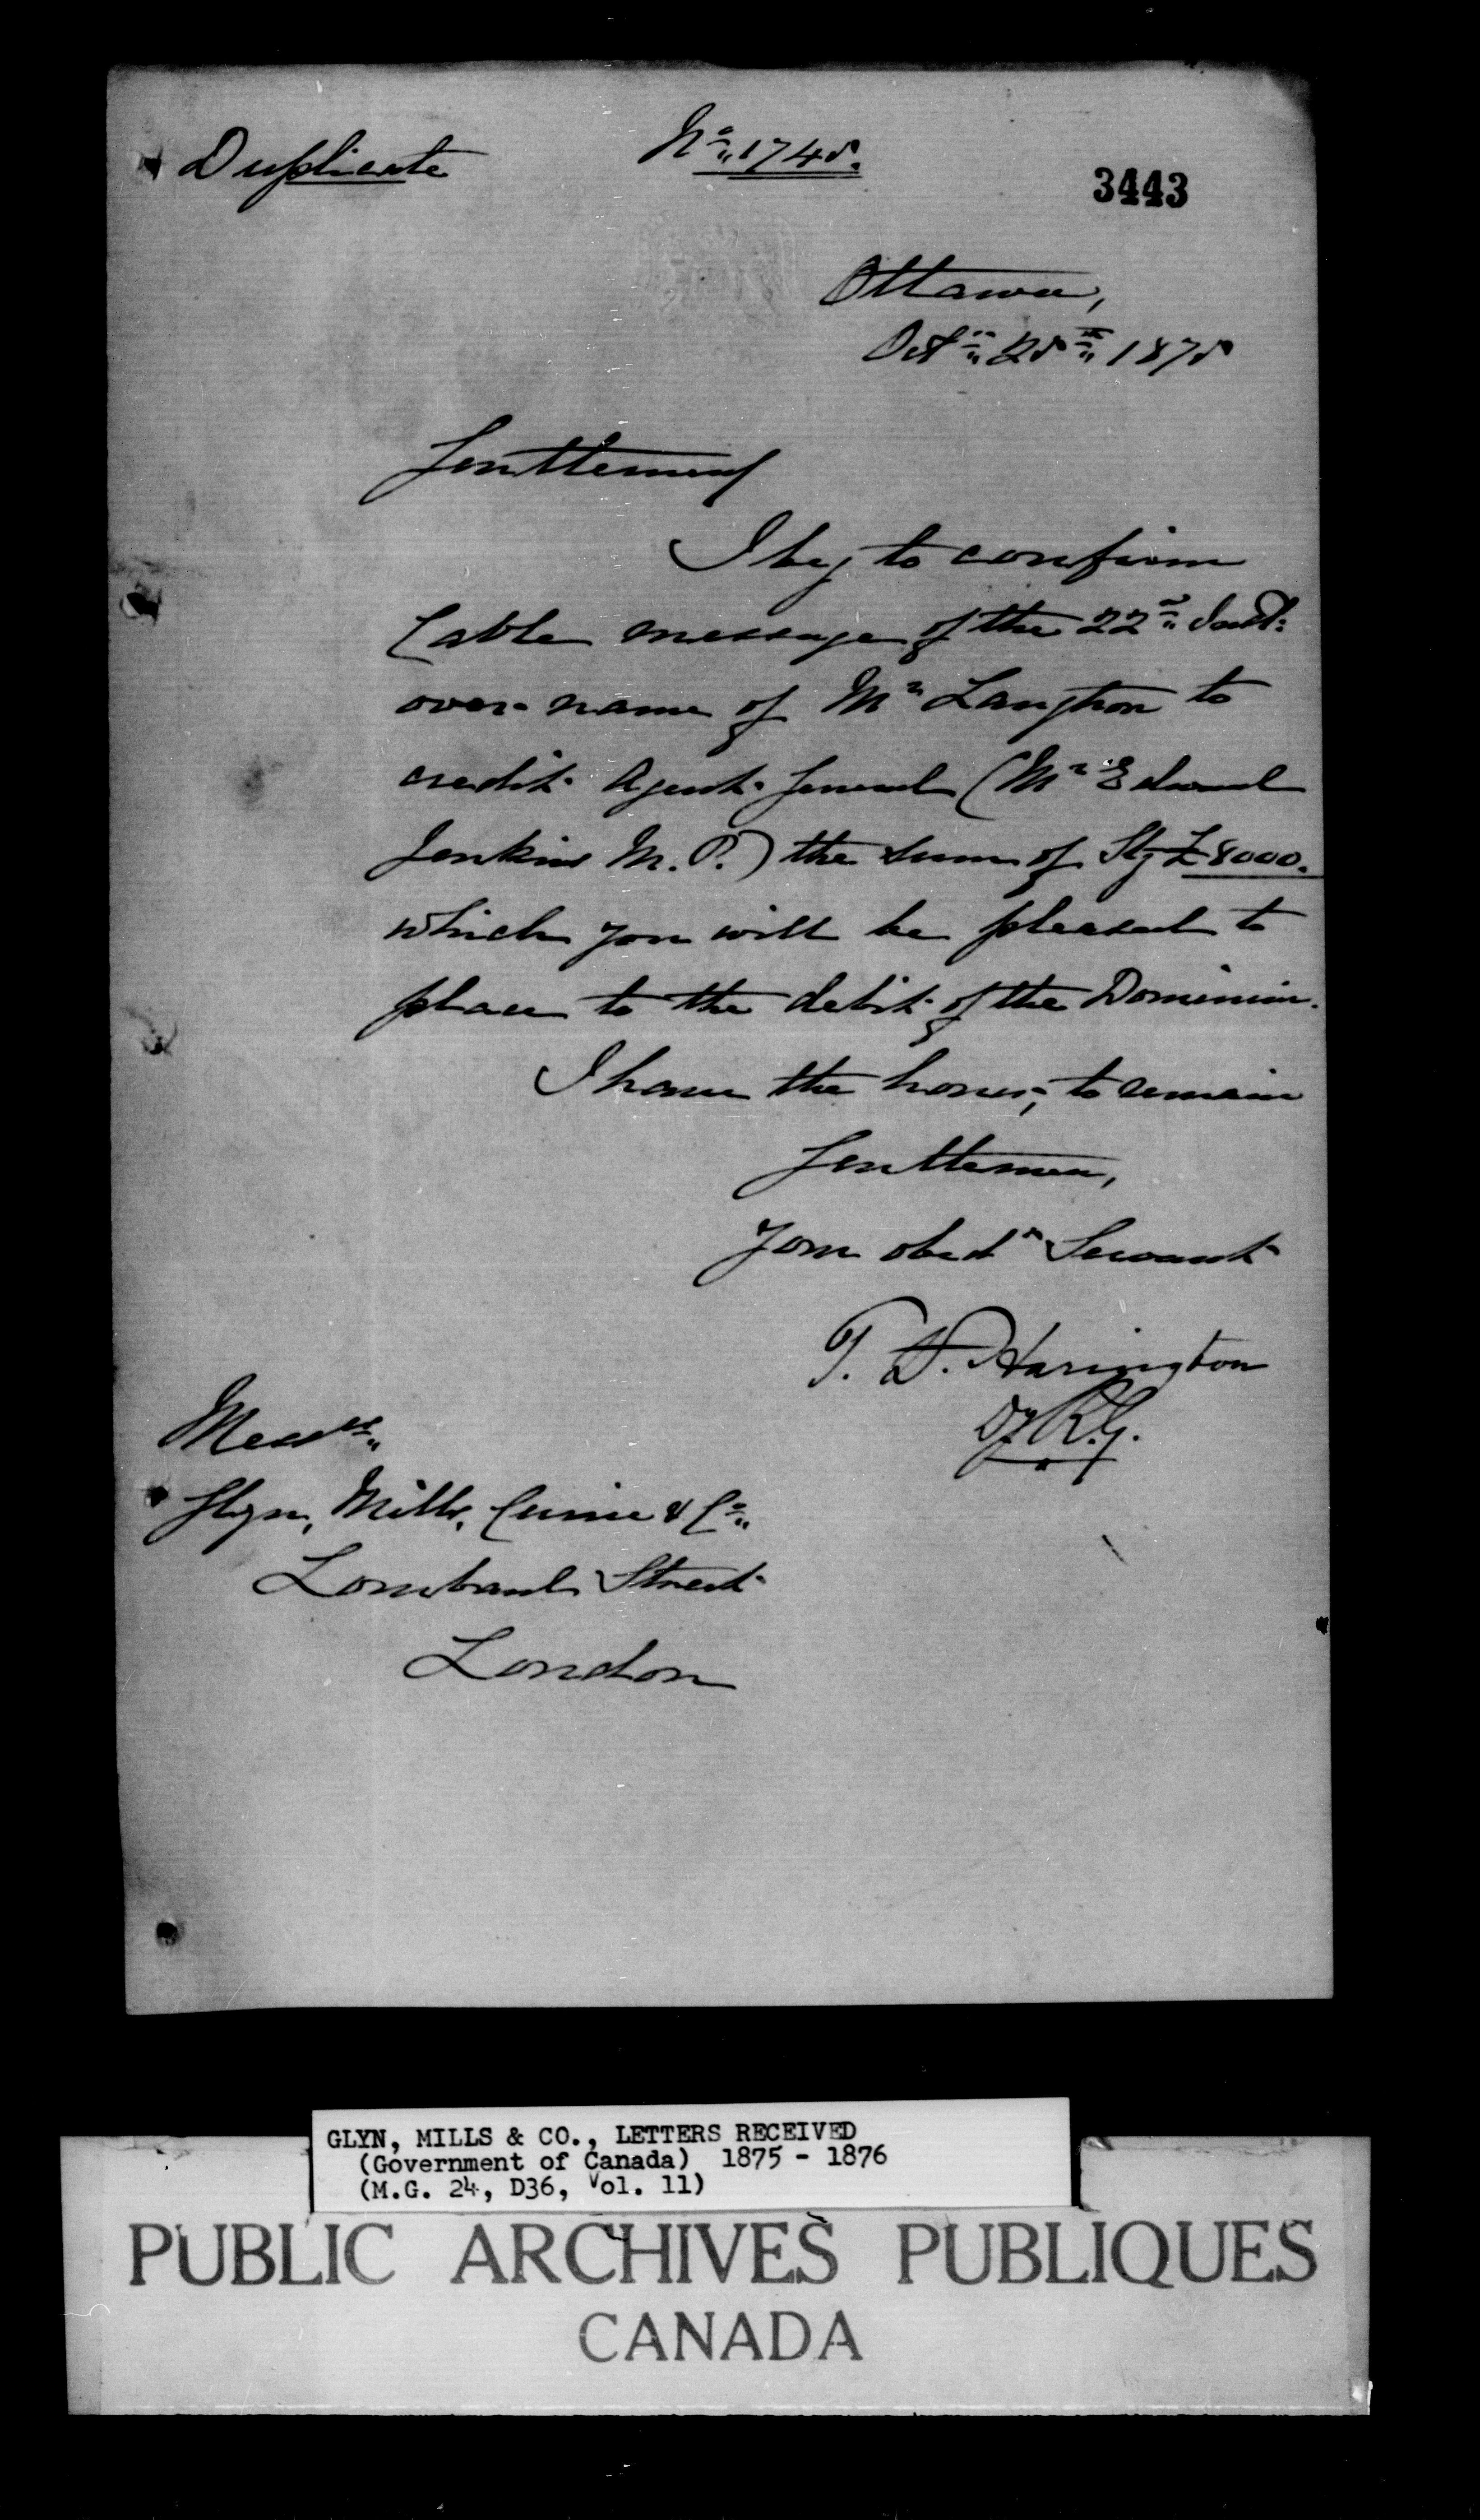 Duplicate
No 1745.
3443
Ottawa,
Octr 25th 1875
Gentlemen
I beg to confirm
Cable message of the 22nd Inst:
over name of Mr Langton to
credit Agent General (Mr Edward
Jenkins M.P.) the sum of Stg £8000.
which you will be pleased to
place to the debit of the Dominion.
I have the honor, to remain
Gentlemen,
Your obedt Servant
T. D. Harington
Dy R.G.
Messrs
Glyn, Mills, Currie & Co
Lombard Street
London
GLYN, MILLS & CO., LETTERS RECEIVED
(Government of Canada) 1875 - 1876
(M.G. 24, D36, Vol. 11)
PUBLIC ARCHIVES PUBLIQUES
CANADA